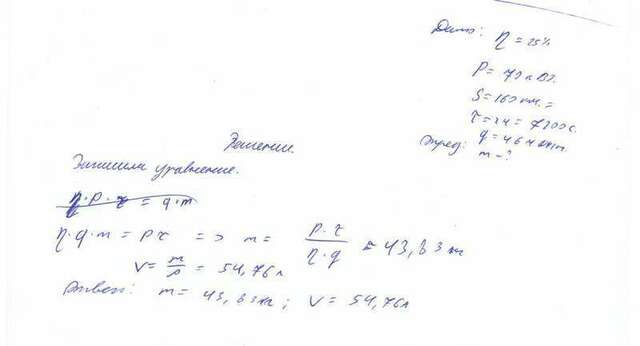 Дано: η = 25%
P = 70 кВт.
S = 160 км. =
τ = 2ч = 7200 с.
q = 46 МДж/кг.
Опред: m - ?
Решение.
Запишем уравнение.
η·P·τ = q·m
η·q·m = Pτ => m = P·τ / η·q = 43,83 кг
V = m/ρ = 54,76 л
Ответ: m = 43,83 кг; V = 54,76 л